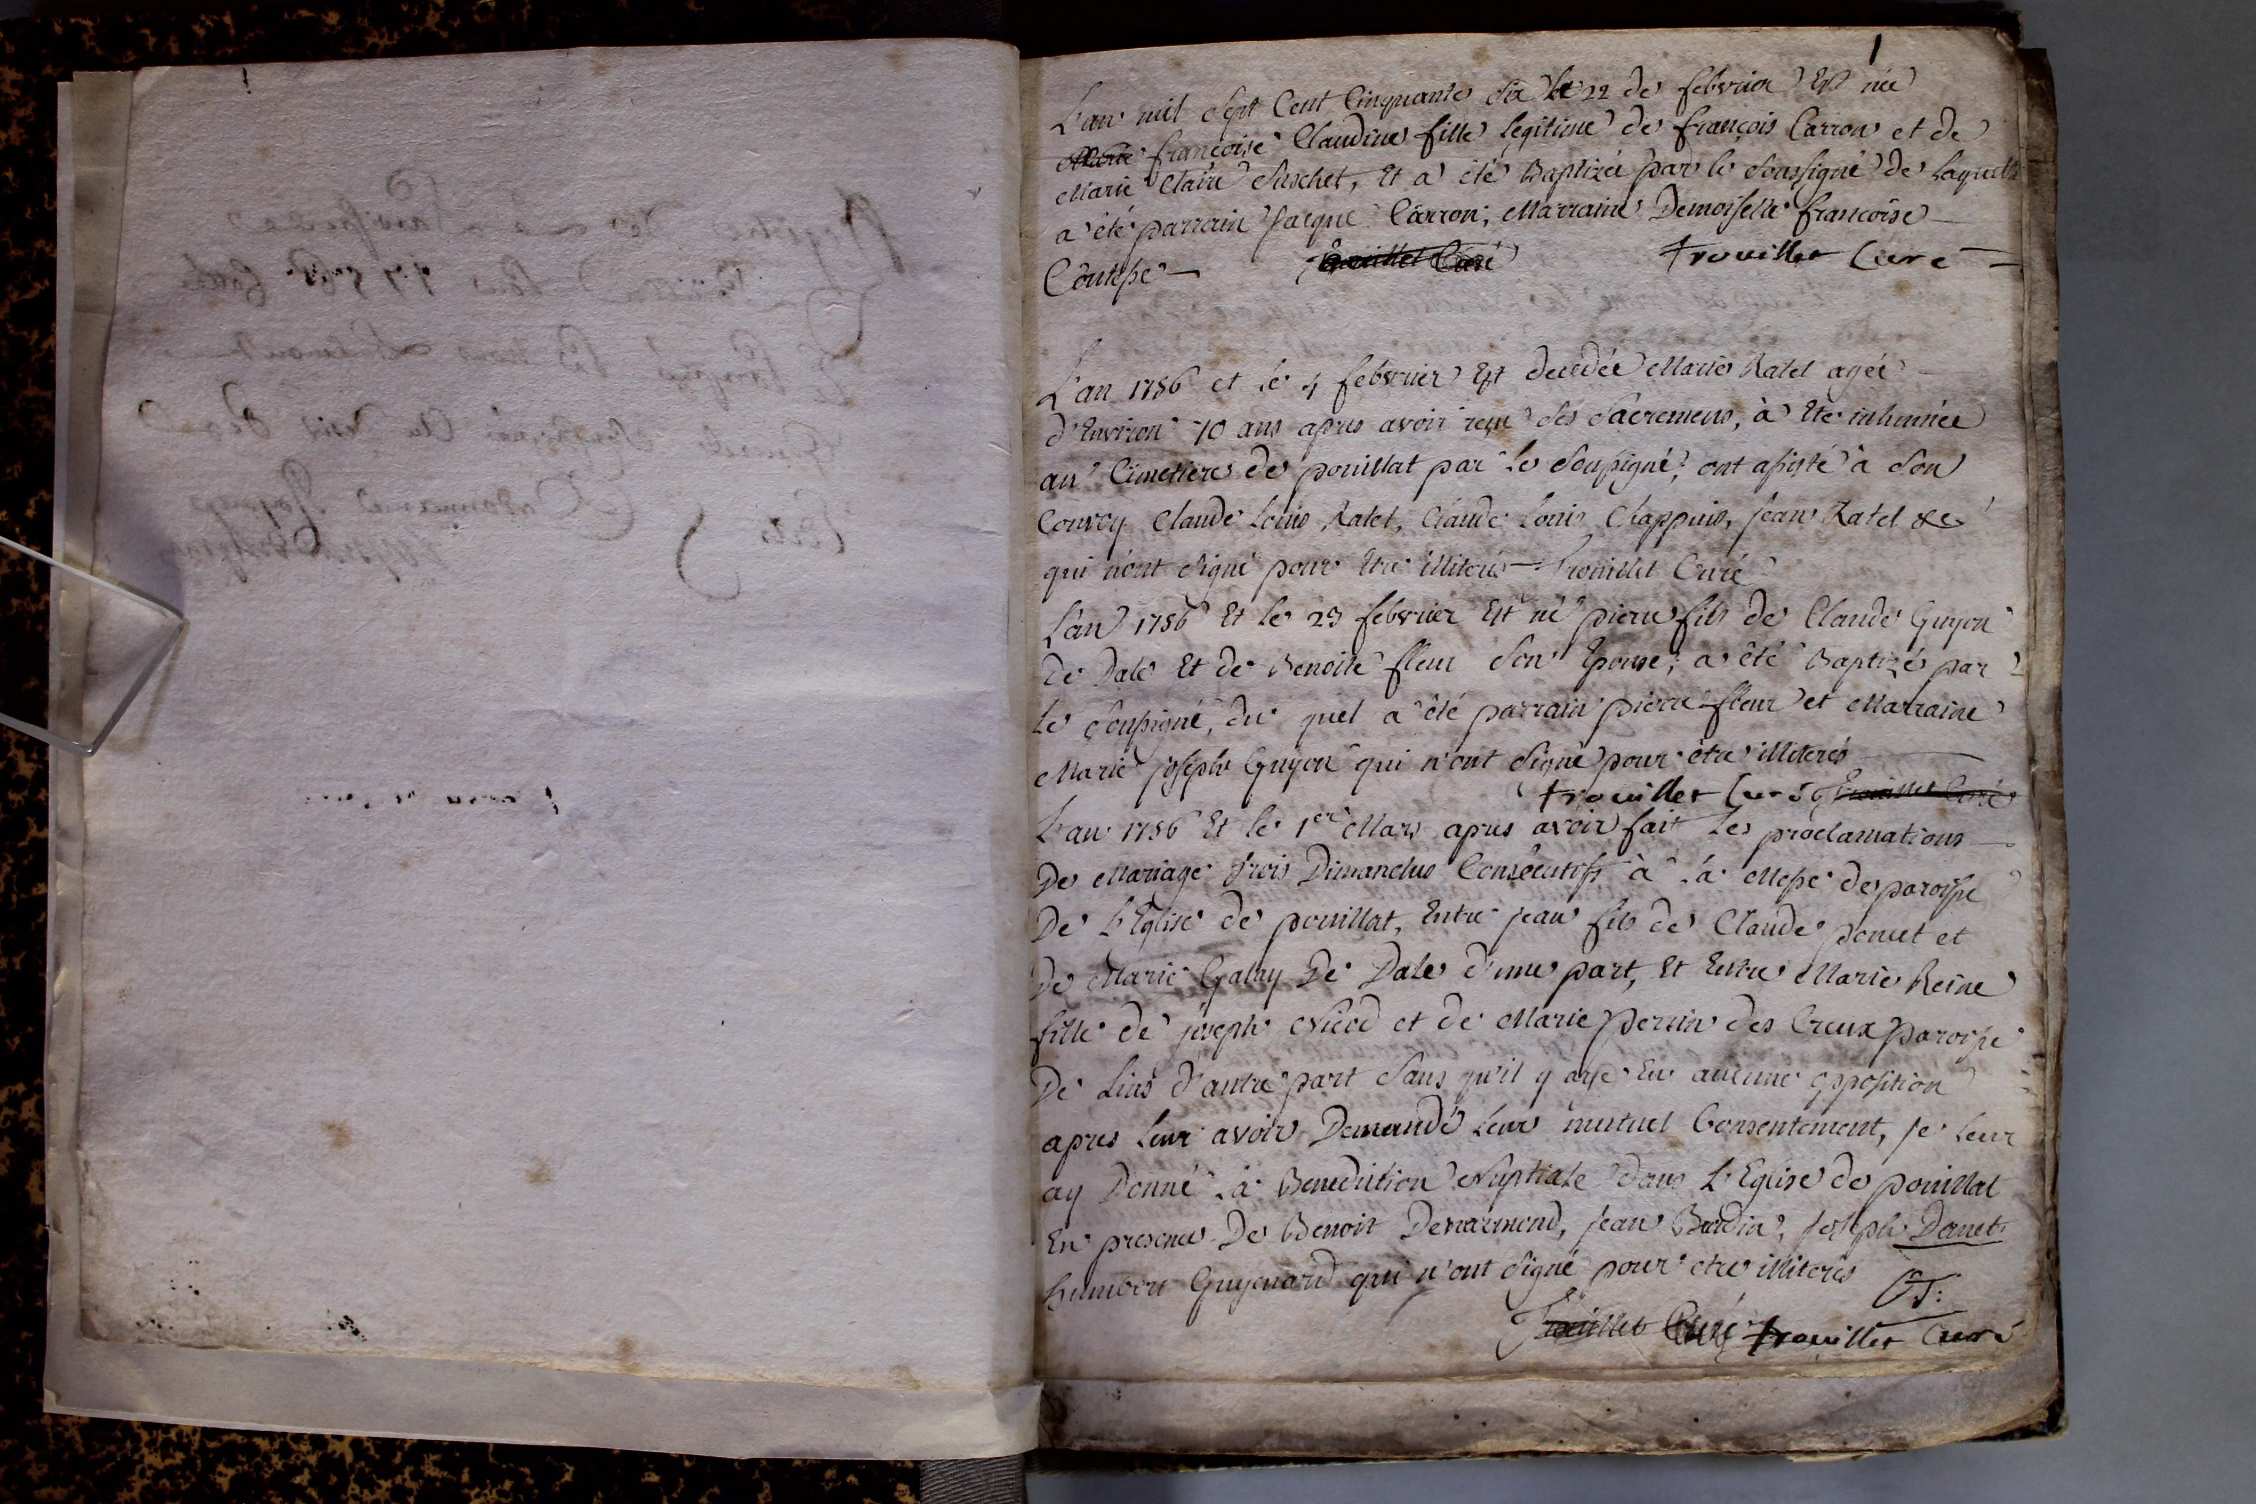 1
L'an mil Sept Cent Cinquante Six le 22 de febvrier Est née
Marie françoise Claudine fille legitime de françois Carron et de
Marie Claire Suschet, Et a été Baptizée par le Soussigné de Laquelle
a été parrain Jacque Carron; Marraine Demoiselle francoise
trouillet Curé
Trouillet Curé
L'an 1756 et le 4 febvrier Est decedée Marie Ratel agée
d'Environ 10 ans apres avoir reçu Ses Sacremens, à Eté inhumée
au Cimetiere de pouillat par le Soussigné; ont assisté à Son
Convoy Claude Louis Ratel, Claude Louis Chappuis, Jean Ratel &c
qui n'ont Signé pour Etre illiterés Trouillet Curé
L'an 1756 Et le 23 febvrier Est né pierre fils de Claude Guyon
De Dale Et de Benoite fleur Son Epouse; a été Baptizé par
Le Soussigné, du quel a été parrain pierre fleur et Marraine
Marie josephe Guyon qui n'ont Signé pour être illiterés
trouillet Curé Trouillet Curé
L'an 1756 Et le 1er Mars apres avoir fait Les proclamations
De Mariage trois Dimanches Consécutifs à la Messe de paroisse
De L'Eglise de pouillat, Entre jean fils de Claude poncet et
De Marie Galay De Dale d'une part, Et Entre Marie Reine
fille de joseph Nicod et de Marie persin des Creux paroisse
De d'autre part Sans qu'il y aye Eu aucune opposition
apres Leur avoir Demandé Leur mutuel Consentement, je Leur
ay Donné la Benediction Nuptiale dans L'Eglise de pouillat
En presence De Benoit jean Joseph Danet
humbert Guyenard qui n'ont Signé pour etre illiterés
Trouillet Curé trouillet Curé